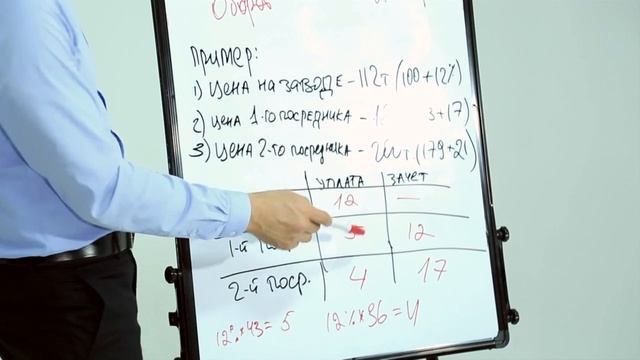 Оборот
Пример:
1) Цена на заводе - 112т (100+12%)
2) цена 1-го посредника - 1 3+17)
3) Цена 2-го посредника - 200т (179+21)
уплата зачет
12 —
1-й 5 12
2-й поср. 4 17
12%*43=5 12%*36=4